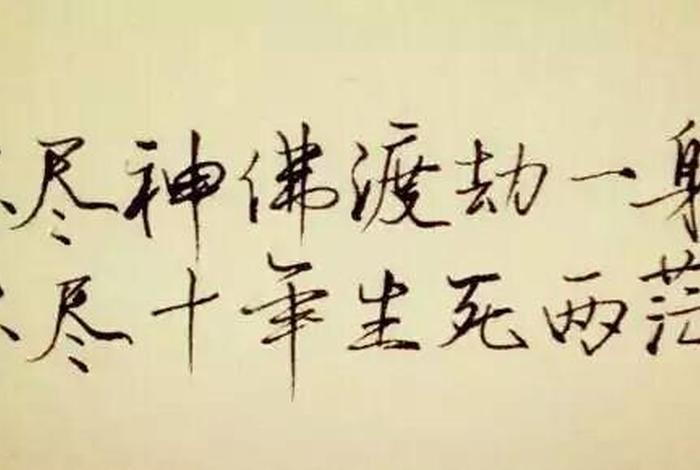 尽神佛渡劫一身
尽十年生死两茫